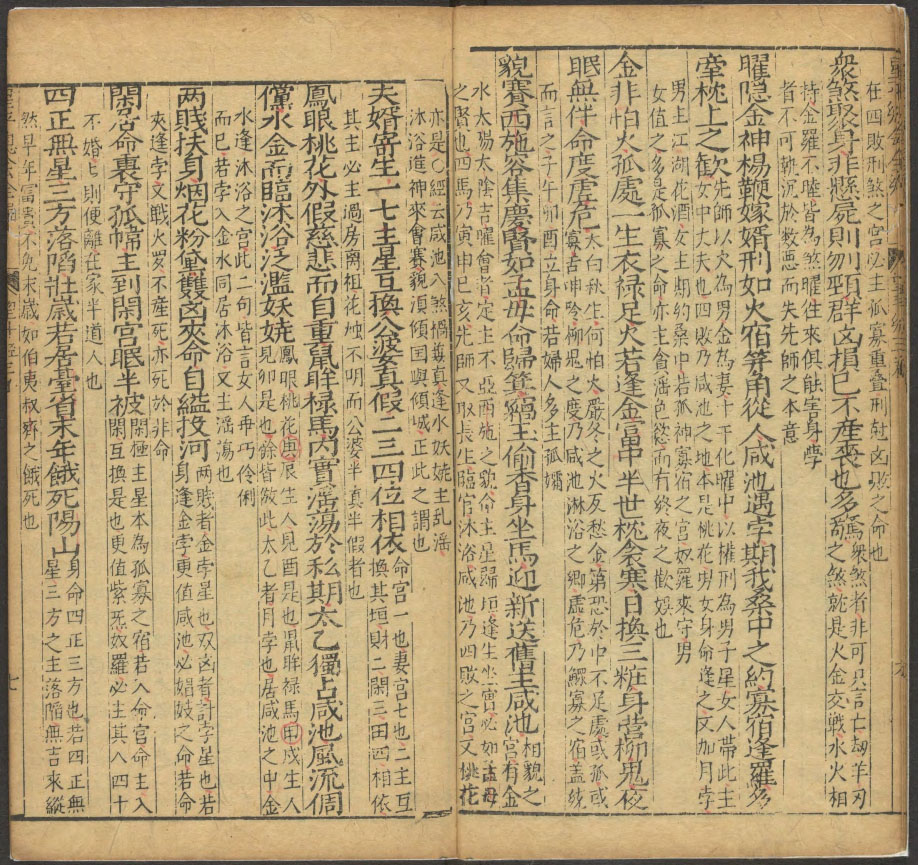 在四敗刑煞之宮必主孤寡重疊刑尅凶敗之命也
衆煞聚身非懸屍則刎頸群凶損已不産喪也多
驚衆煞者非可只言亡刼羊刃
奇之煞就是火金交戰水火相
持金羅不睦皆為煞曜往來俱能害身孛
者不可執沉於数悪而失先師之本意
曜隐金神楊鞭嫁婿刑如火宿筹角從人咸池遇孛期我桑中之約寡宿逢羅多
牽枕上之歡
先師以火為男金為妻十干化曜中以權刑為男子星女人帶此主
女中大丈夫也四敗乃咸池之地本是桃花男女身命逢之又加月孛
男主江湖花酒女主期約桑中若孤神寡宿之宮奴羅來守男
女值之多是孤寡之命亦主會滛色慾而有終夜之歡娱也
金非怕火孤處一生衣禄足火若逢金富中半世枕衾寒日換三粧身营柳鬼夜
眠無伴命度虛危
太白秋生何怕火嚴冬之火反愁金第恐於中不足處或孤或
寡古申吟柳鬼之度乃咸池淋浴之卿虛危乃鰥寡之宿盖統
而言之子午卯酉立身命若婦人多主孤孀
貌賽西施容集慶賢如孟母命歸箕竊玉偷香身坐馬迎新送舊主咸池
相貌之
宮有金
水太陽太陰吉曜會者定主不亞西施之貌命主星歸垣逢生坐寅必如孟母
之賢也四馬乃寅申巳亥先師又取長生臨官沐浴咸池乃四敗之宮又桃花
亦是〇經云咸池入煞禍非真逢水妖姚主乱滛
沐浴進神來會賽貌湏傾国與傾城正此之謂也
夫婿寄生一七主星互換公婆真假二三四位相依
命宮一也妻宮七也二主互
換其垣財二閑三田四相依
其主必主過房离祖花烛不明而公婆半真半假者也
鳳眼桃花外假慈悲而自重鼠眸禄馬内實滛蕩於私期太乙獨占咸池風流倜
儻水金而臨沐浴泛濫妖娆
鳳眼桃花庚辰生人見酉是也鼠眸禄馬甲戌生人
見卯是也餘皆倣此太乙者月孛也居咸池之中金
水逢沐浴之宮此二句皆言女人再丐伶俐
而巳若孛入金水同居沐浴又主滛蕩也
两賤扶身烟花粉黛雙凶夾命自縊投河
两賤者金孛星也双凶者計孛星也若
身逢金孛更值咸池必娼妓之命若命
夾逢孛又戰火羅不産死亦死於非命
閑寡命裏守孤幃主到閑宮眠半被
閑極主星本為孤寡之宿若入命宮命主入
閑互換是也更值紫炁奴羅必主其人四十
不婚七則便離在家半道人也
四正無星三方落陷壯歲若居臺省末年餓死陽山
身命四正三方也若四正無
星三方之主落陷無吉來縱
然早年富貴不免末歳如伯夷叔齊之餓死也